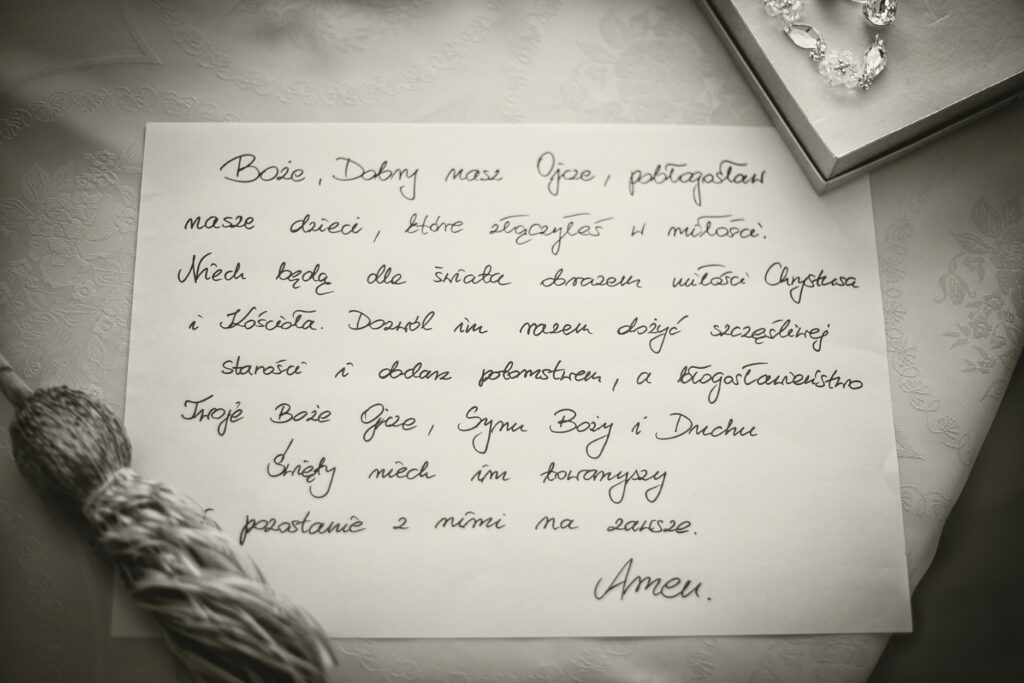 Boże, Dobry nasz Ojcze, pobłogosław
nasze dzieci, które złączyłeś w miłości.
Niech będą dla świata obrazem miłości Chrystusa
i Kościoła. Dozwól im razem dożyć szczęśliwej
starości i obdarz potomstwem, a błogosławieństwo
Twoje Boże Ojcze, Synu Boży i Duchu
Święty niech im towarzyszy
i pozostanie z nimi na zawsze.
Amen.